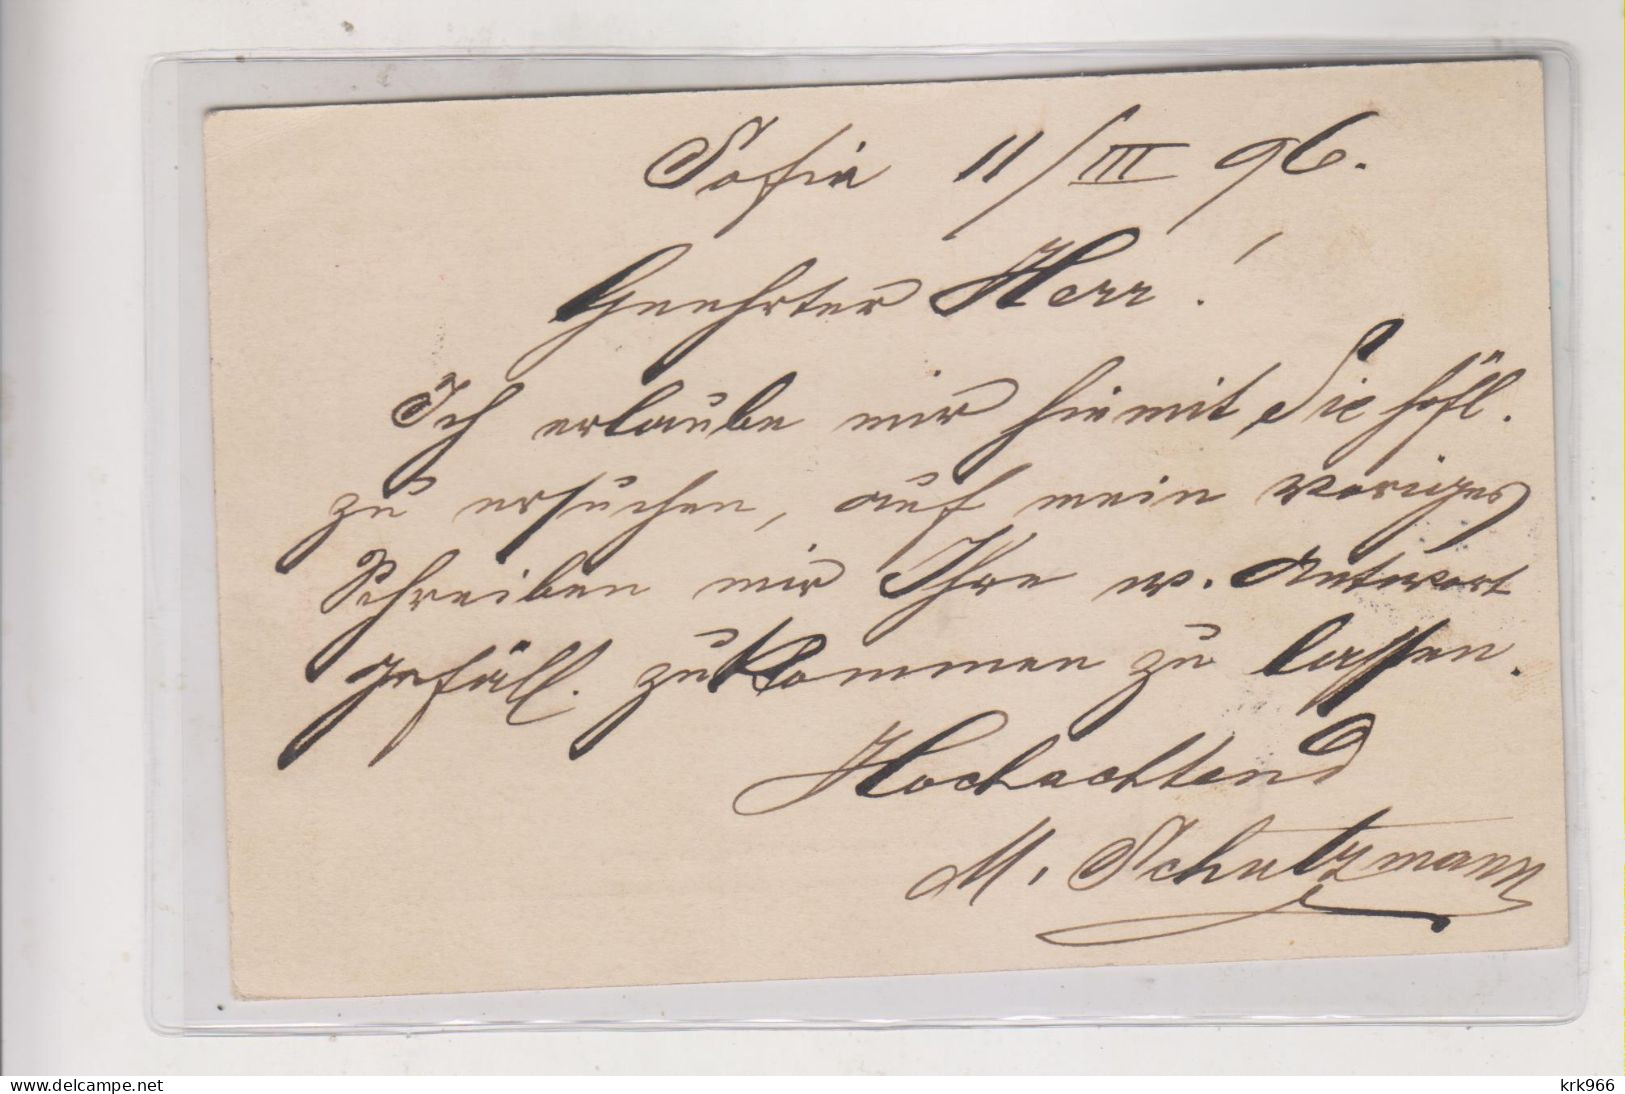 Sofia 11/III 96.
Geehrter Herr!
Ich erlaube mir hiemit Sie höfl.
zu ersuchen, auf mein voriges
Schreiben mir Ihre w. Antwort
gefäll. zukommen zu lassen.
Hochachtend
M. Schutzmann
www.delcampe.net
krk966